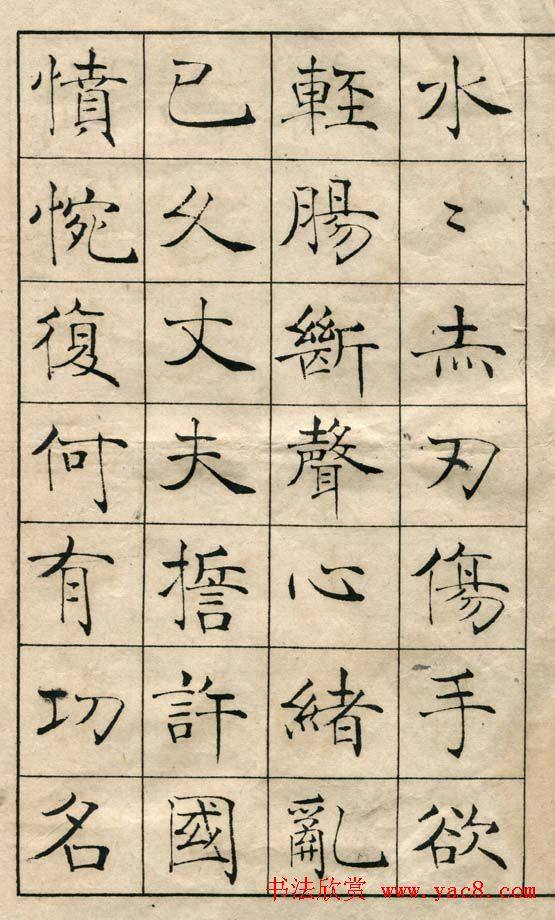 水〻赤刃傷手欲
輕腸斷聲心緒亂
已久丈夫誓許國
憤惋復何有功名
书法欣赏 www.yac8.com